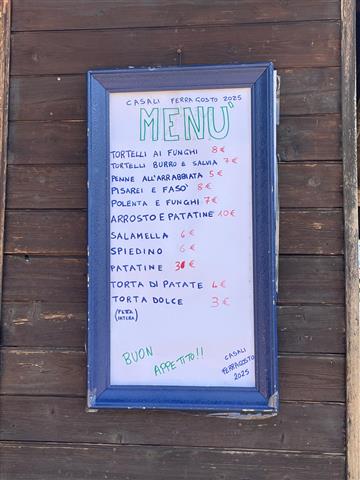 CASALI FERRAGOSTO 2025
MENU'
TORTELLI AI FUNGHI 8 €
TORTELLI BURRO E SALVIA 7 €
PENNE ALL'ARRABBIATA 5 €
PISAREI E FASO' 8 €
POLENTA E FUNGHI 7 €
ARROSTO E PATATINE 10 €
SALAMELLA 6 €
SPIEDINO 6 €
PATATINE 3 €
TORTA DI PATATE 4 €
TORTA DOLCE 3 €
(FETTA
INTERA)
BUON
APPETITO!!
CASALI
FERRAGOSTO
2025